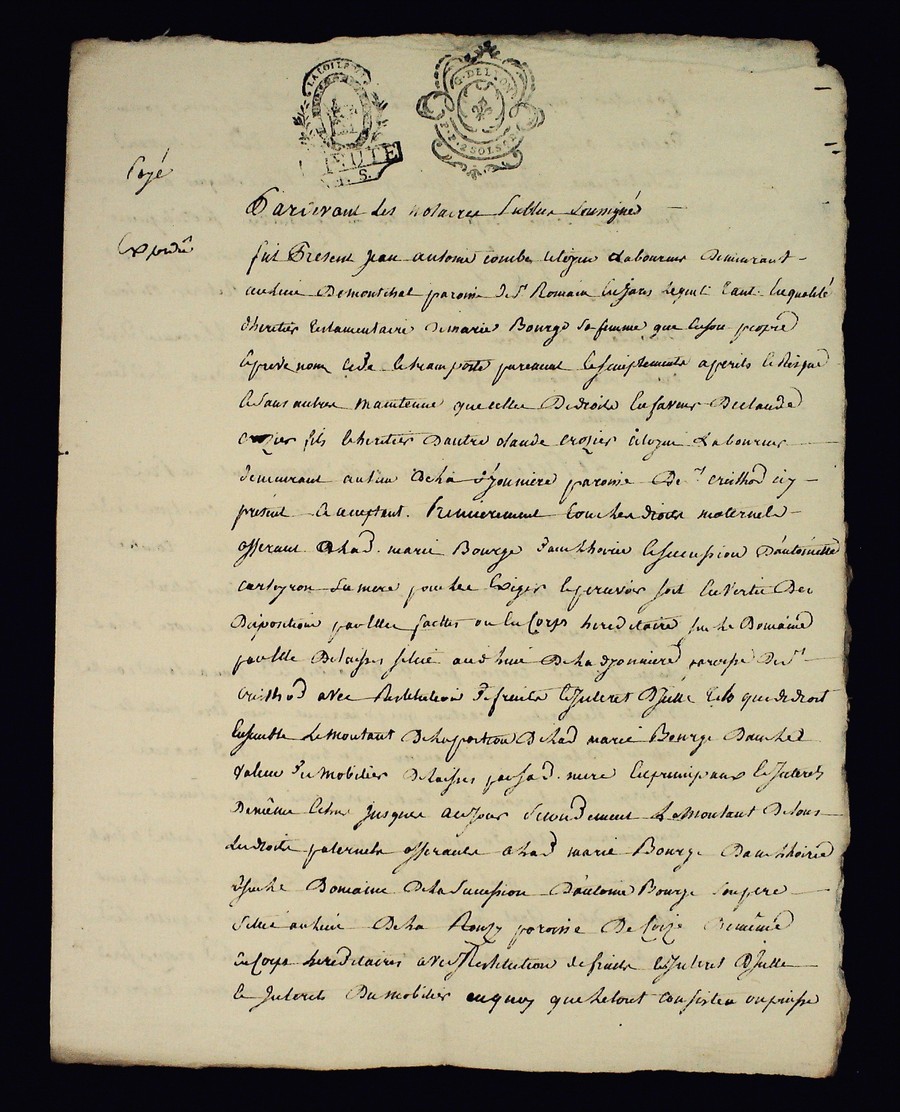 LA LOI LE
MINUTE
S.
G. DE LYON
P.P. 2 SOLS 6 D
Payé
Expedié
Pardevant les notaires Publics soussigné
fut Present Jean antoine combe citoyen Laboureur Demeurant
au lieu De montchal paroisse de St Romain en Jarts lequel tant en qualité
d'heritier testamentaire de marie Bourge sa femme que de son propre
cede et transporte purement et simplement a perils et Risque
et sans autre maintenue que celle De droit en faveur De claude
crozier fils et heritier D'autre claude crozier citoyen Laboureur
demeurant au lieu De la paroisse De St cristhod icy
présent et acceptant. Premierement tous les droits maternels
afferant a lad. marie Bourge Dans L'hoirie et succession D'antoinette
sa mere pour les Exiger et percevoir soit en Vertu Des
Dispositions par elle faittes ou en Corps hereditaire sur le Domaine
par elle Delaissé situé audit lieu De la paroisse De St
Cristhod avec Restitution de fruits et Interet D'Iceux tels que de droit
Ensemble Le montant De la portion De lad marie Bourge Dans la
valeur Du mobilier Delaissé par sad. mere en principaux et Interets
De même Jusques a ce Jour Secondement Le Montant De tous
Les droits paternels afferants a lad marie Bourge Dans L'hoirie
sur le Domaine De la Succession D'antoine Bourge son pere
Situé au lieu De la paroisse De De même
en Corps hereditaires avec Restitution de fruits et Interet D'Iceux
et Interets Du mobilier en quoy que le tout consiste ou puisse